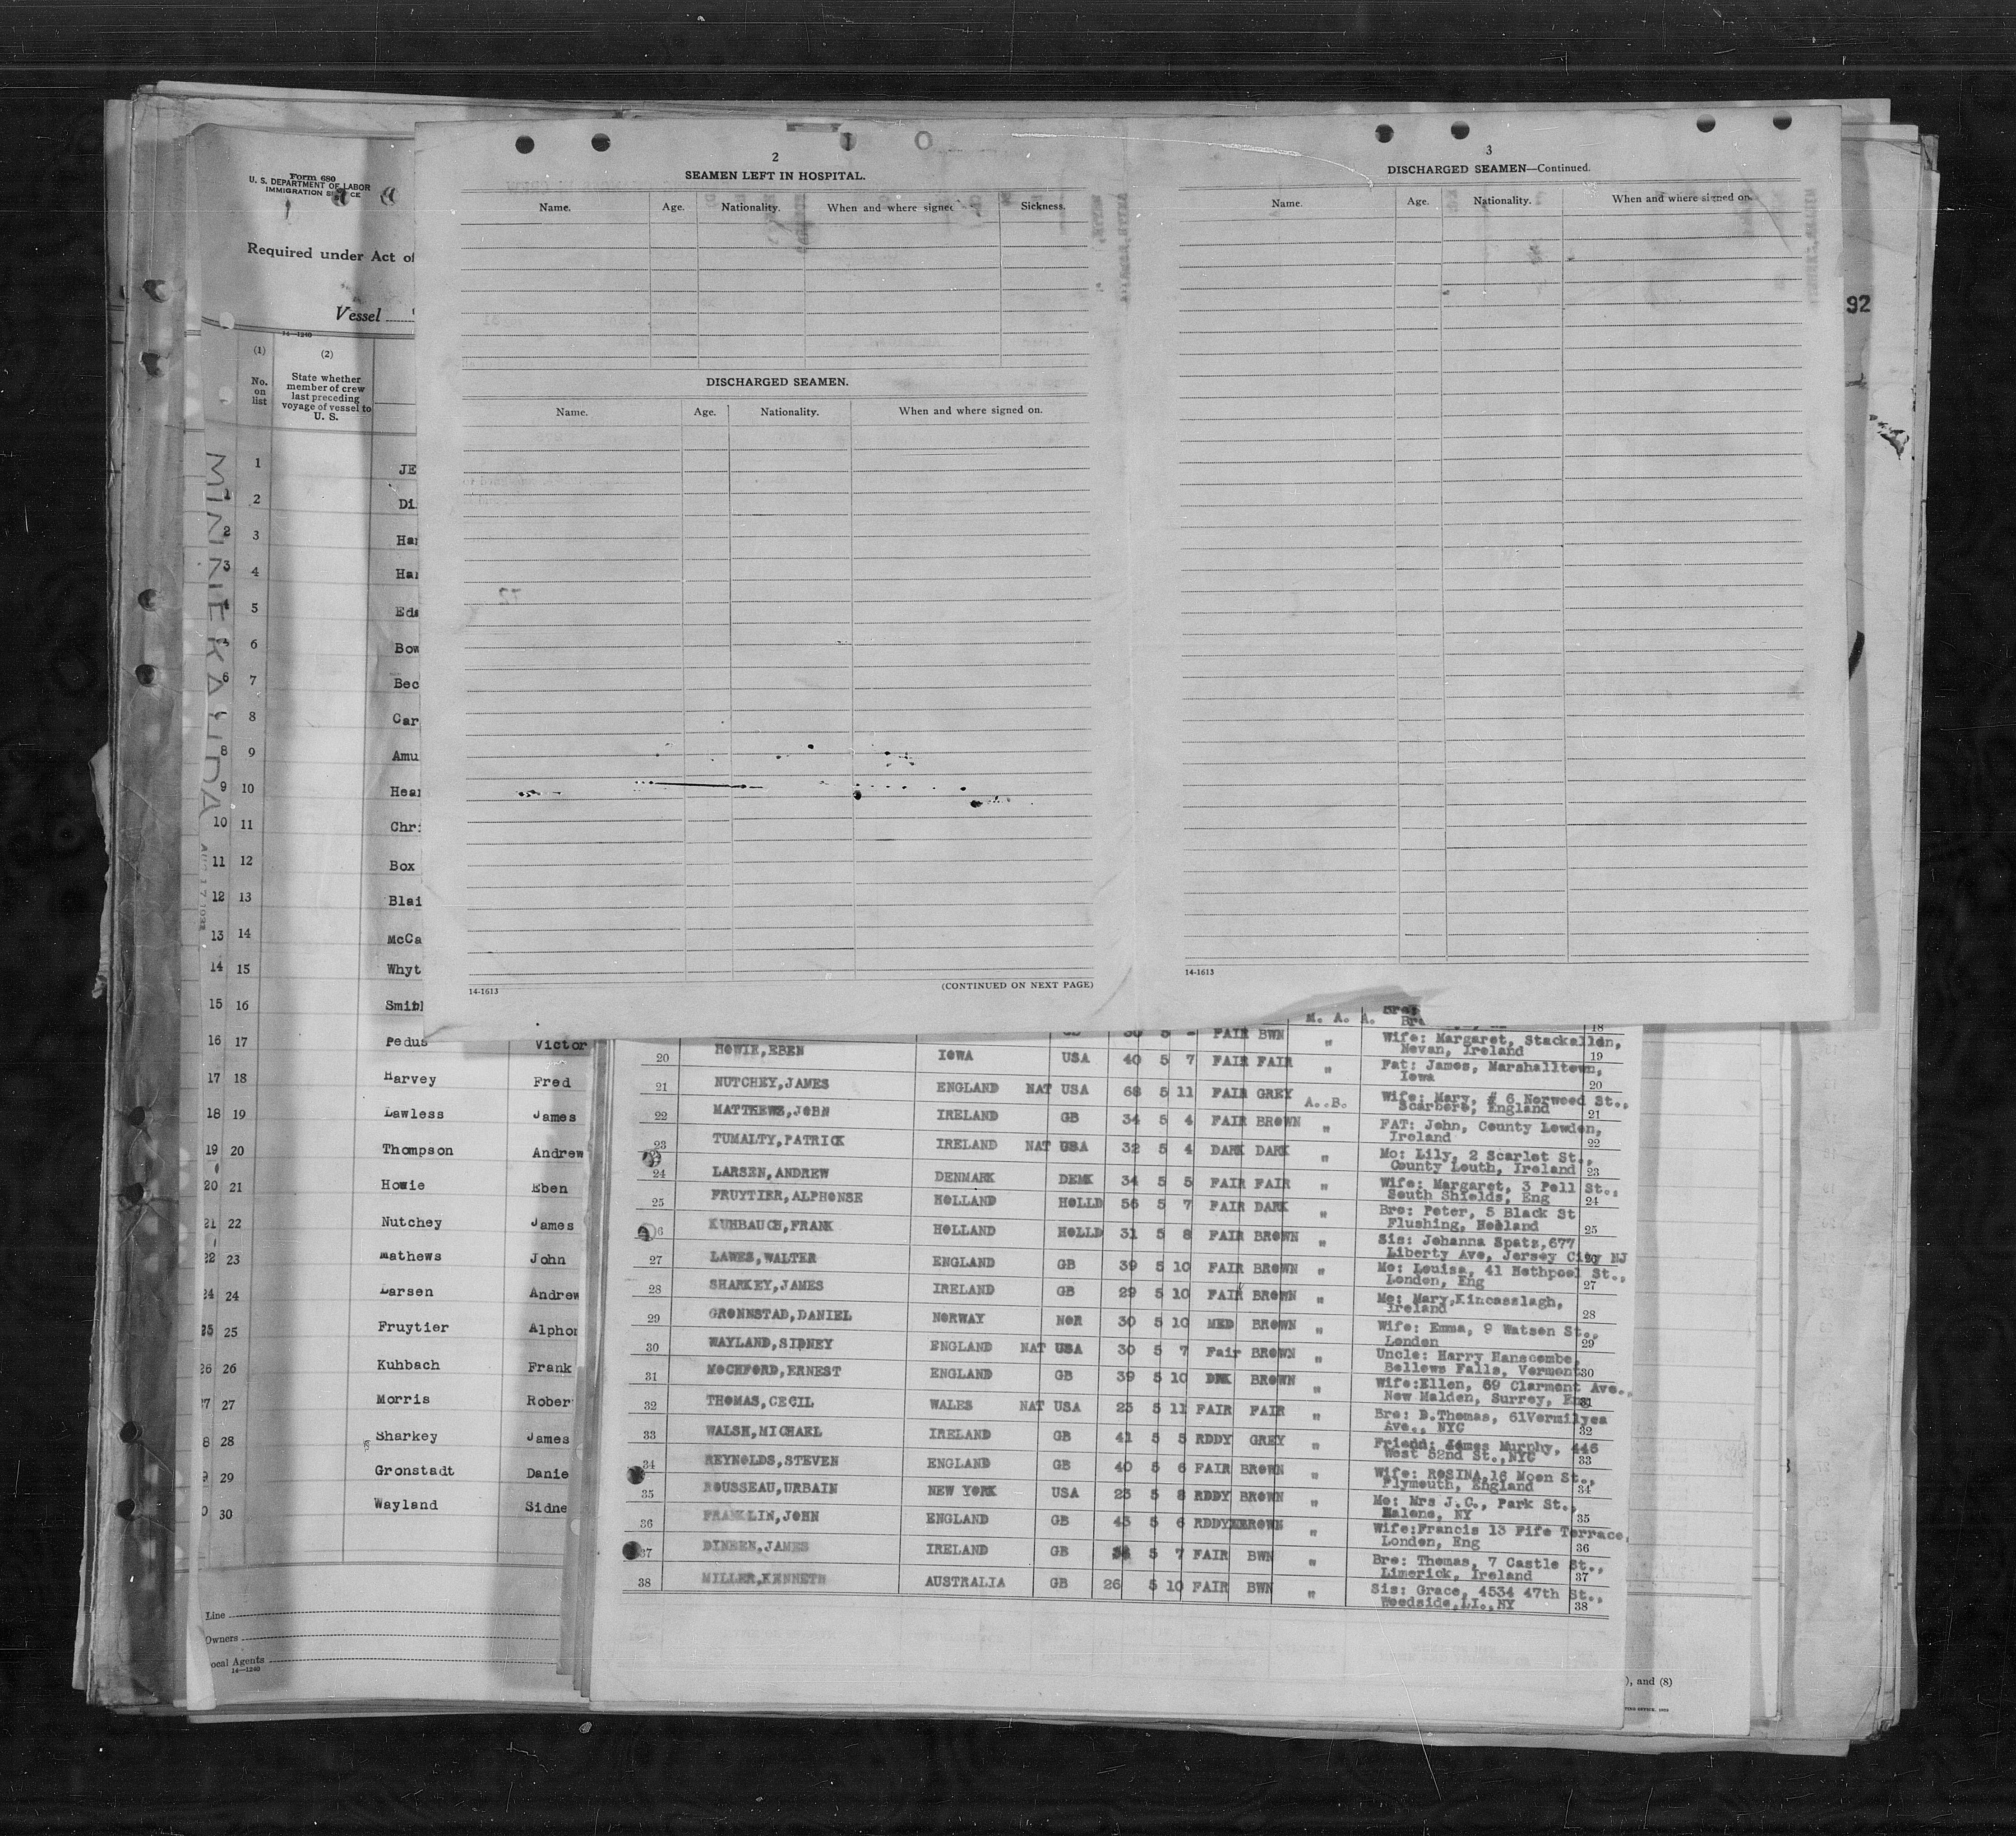 2
SEAMEN LEFT IN HOSPITAL.
Name. Age. Nationality. When and where signed Sickness.
DISCHARGED SEAMEN.
Name. Age. Nationality. When and where signed on.
14-1613 (CONTINUED ON NEXT PAGE)
3
DISCHARGED SEAMEN—Continued.
Name. Age. Nationality. When and where signed on.
14-1613
92
Form 680
U. S. DEPARTMENT OF LABOR
IMMIGRATION
Required under Act of
Vessel
14—1240
(1) (2)
No. on list
State whether
member of crew
last preceding
voyage of vessel to
U. S.
MINNEKAHDA
1 JE
2 Di
2 3 Har
3 4 Har
5 Edw
6 Bow
6 7 Bec
8 Car
8 9 Amu
9 10 Hear
10 11 Chri
11 12 Box
12 13 Blai
13 14 McCa
14 15 Whyt
15 16 Smith
16 17 Pedus Victor
17 18 Harvey Fred
18 19 Lawless James
19 20 Thompson Andrew
20 21 Howie Eben
21 22 Nutchey James
22 23 Mathews John
24 24 Larsen Andrew
25 25 Fruytier Alphon
26 26 Kuhbach Frank
27 27 Morris Rober
8 28 Sharkey James
9 29 Gronstadt Danie
0 30 Wayland Sidne
Line
Owners
ocal Agents
14—1240
M. A. A. Bro:
18
FAIR BWN " Wife: Margaret, Stackallen,
Nevan, Ireland 19
20 HOWIE,EBEN IOWA USA 40 5 7 FAIR FAIR " Fat: James, Marshalltown,
Iowa 20
21 NUTCHEY,JAMES ENGLAND NAT USA 68 5 11 FAIR GREY A..B. Wife: Mary, # 6 Norwood St.,
Scarboro, England 21
22 MATTHEWS,JOHN IRELAND GB 34 5 4 FAIR BROWN " FAT: John, County Lowden,
Ireland 22
23 TUMALTY,PATRICK IRELAND NAT USA 32 5 4 DARK DARK " Mo: Lily, 2 Scarlet St.,
County Louth, Ireland 23
24 LARSEN,ANDREW DENMARK DEMK 34 5 5 FAIR FAIR " Wife: Margaret, 3 Pell St.,
South Shields, Eng 24
25 FRUYTIER,ALPHONSE HOLLAND HOLLD 56 5 7 FAIR DARK " Bro: Peter, 5 Black St
Flushing, Holland 25
6 KUHBAUCH,FRANK HOLLAND HOLLD 31 5 8 FAIR BROWN " Sis: Johanna Spatz,677
Liberty Ave, Jersey City NJ
27 LAWES,WALTER ENGLAND GB 39 5 10 FAIR BROWN " Mo: Louisa, 41 Hethpool St.,
London, Eng 27
28 SHARKEY,JAMES IRELAND GB 29 5 10 FAIR BROWN " Mo: Mary,Kincasslagh,
Ireland 28
29 GRONNSTAD,DANIEL NORWAY NOR 30 5 10 MED BROWN " Wife: Emma, 9 Watson St.,
London 29
30 WAYLAND,SIDNEY ENGLAND NAT USA 30 5 7 Fair BROWN " Uncle: Harry Hanscombe,
Bellows Falls, Vermont 30
31 MOCHFORD,ERNEST ENGLAND GB 39 5 10 DRK BROWN " Wife:Ellen, 69 Clarmont Ave.,
New Malden, Surrey, Eng 31
32 THOMAS,CECIL WALES NAT USA 23 5 11 FAIR FAIR " Bro: D.Thomas, 61Vermilyea
Ave., NYC 32
33 WALSH,MICHAEL IRELAND GB 41 5 5 RDDY GREY " Friend: James Murphy, 446
West 52nd St.,NYC 33
34 REYNOLDS,STEVEN ENGLAND GB 40 5 6 FAIR BROWN " Wife: ROSINA,16 Moon St.,
Plymouth, England 34
35 ROUSSEAU,URBAIN NEW YORK USA 23 5 8 RDDY BROWN " Mo: Mrs J.C., Park St.,
Malone, NY 35
36 FRANKLIN,JOHN ENGLAND GB 43 5 6 RDDY BROWN " Wife:Francis 13 Fife Terrace,
London, Eng 36
37 DINEEN,JAMES IRELAND GB 5 7 FAIR BWN " Bro: Thomas, 7 Castle St.,
Limerick, Ireland 37
38 MILLER,KENNETH AUSTRALIA GB 26 5 10 FAIR BWN " Sis: Grace, 4534 47th St.,
Woodside,LI.,NY 38
), and (8)